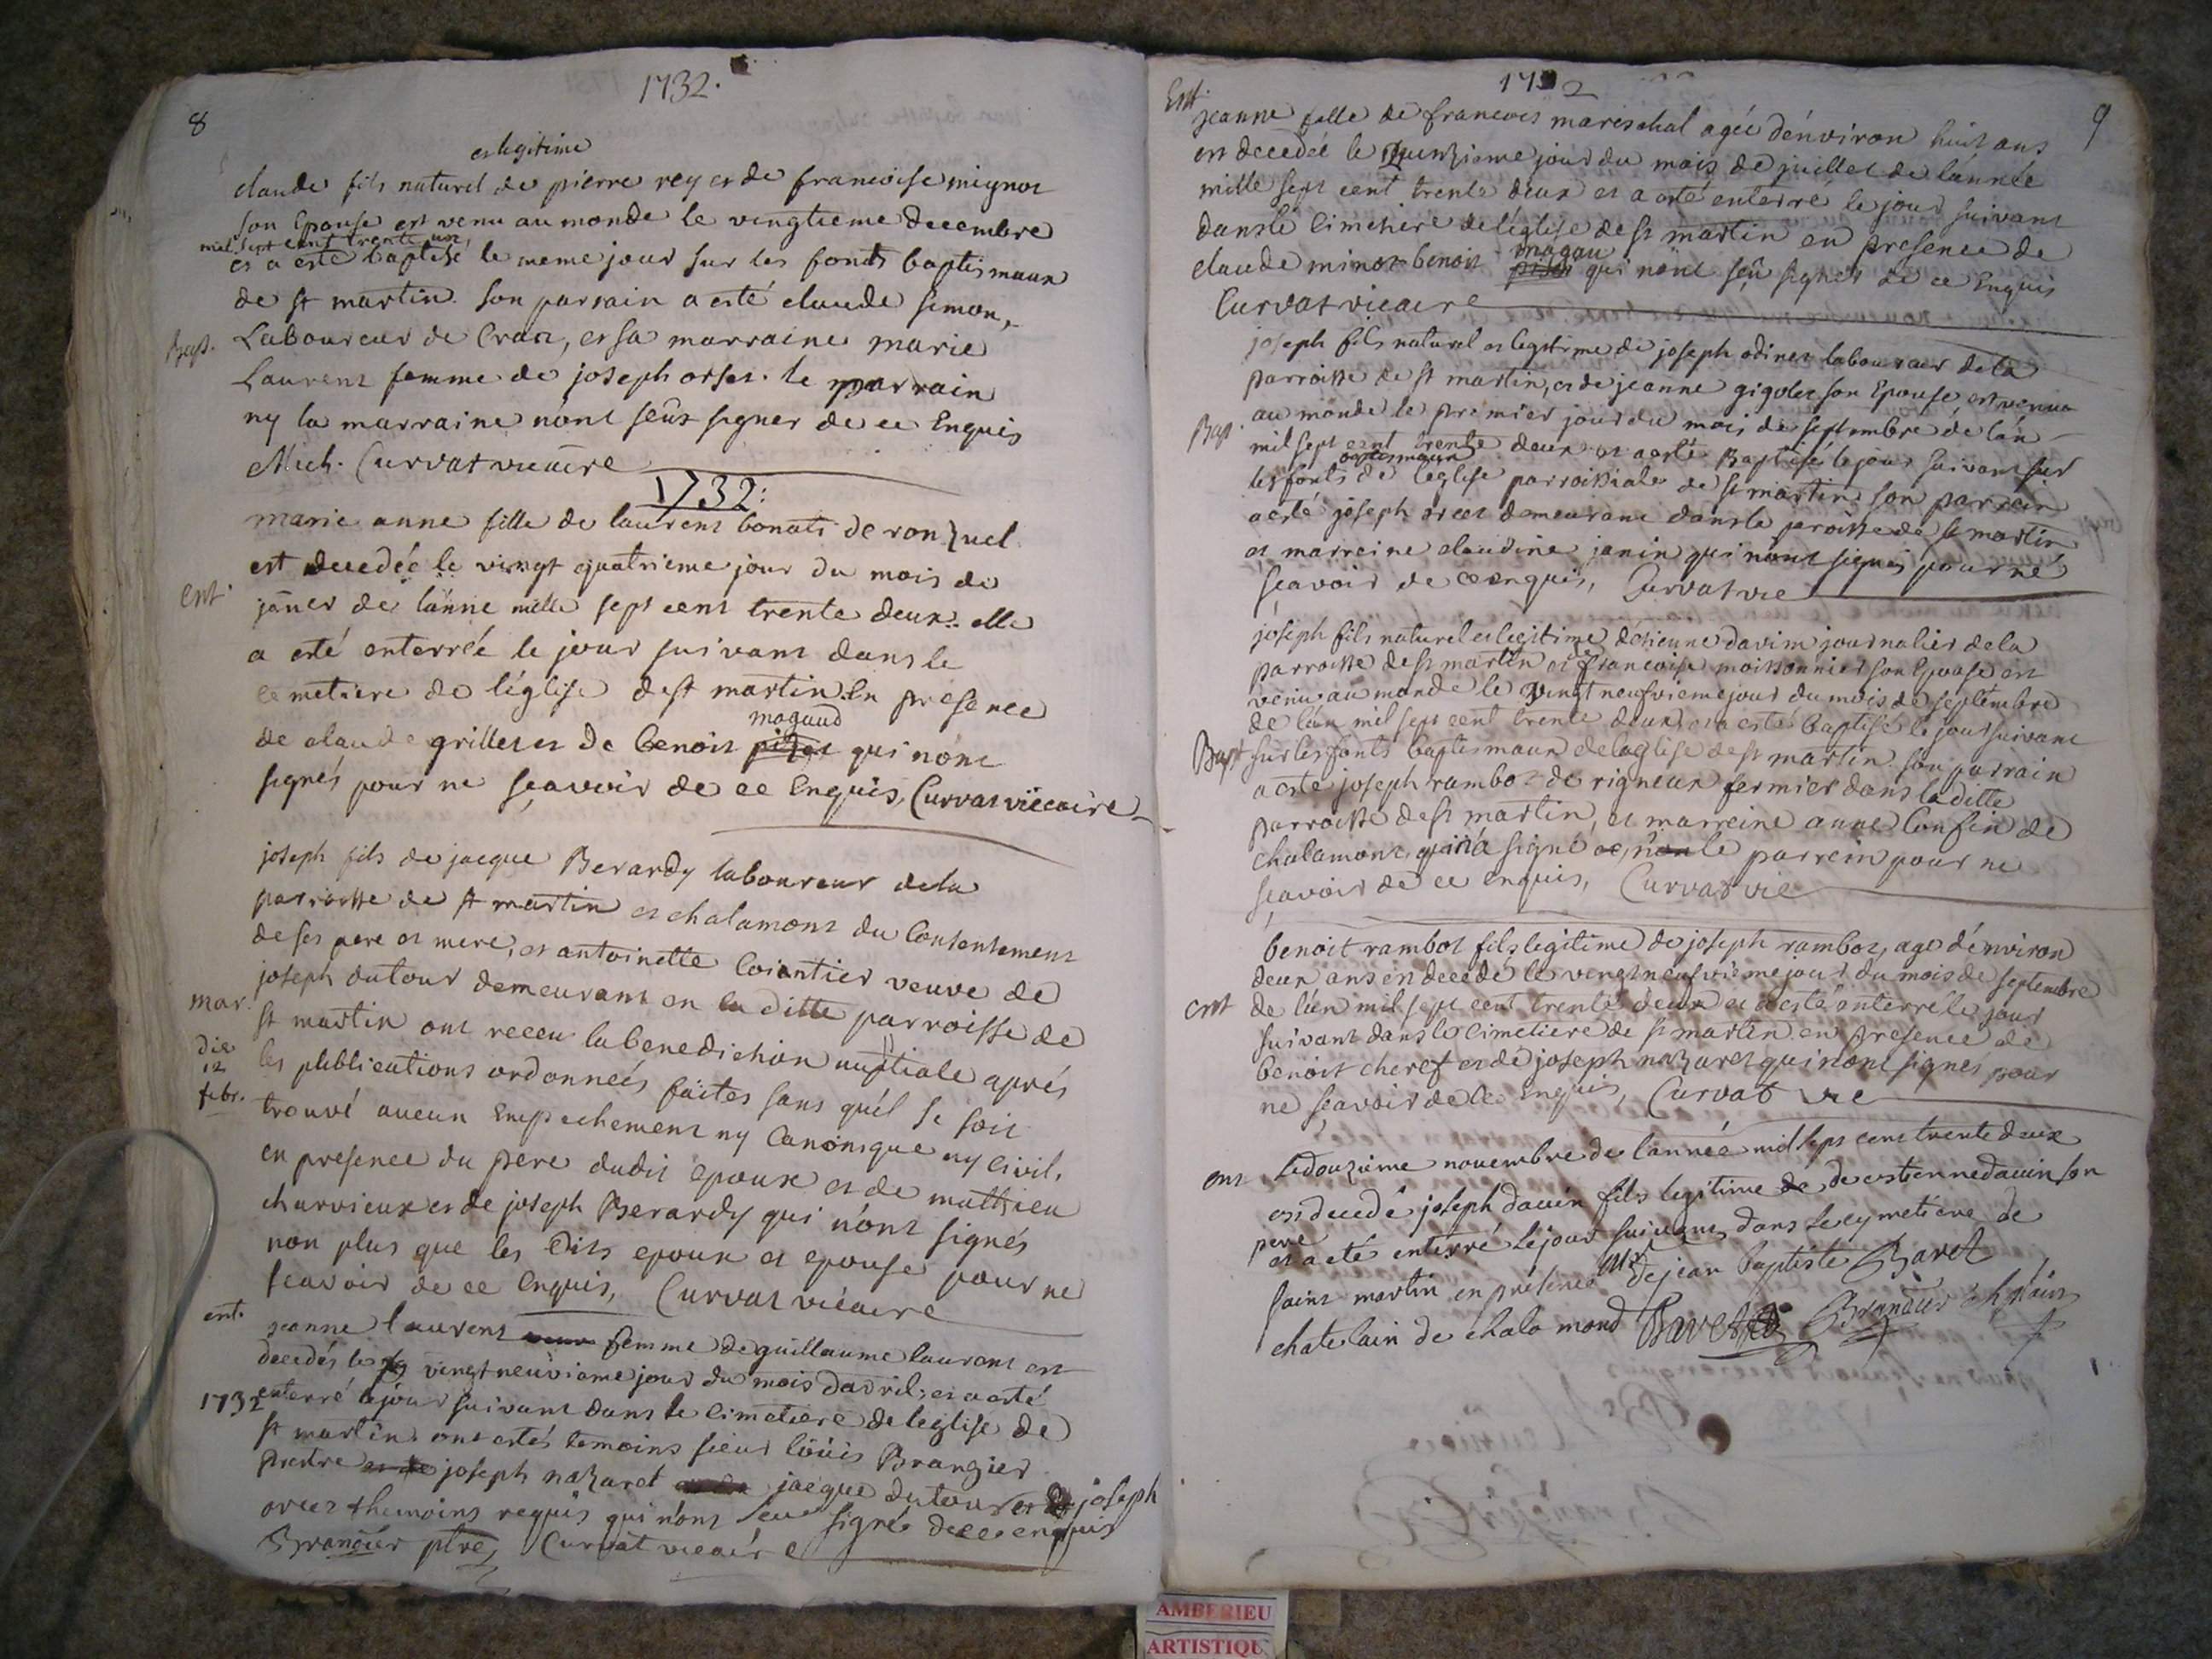 1732.
8
et legitime
claude fils naturel de pierre rey et de francoise mignot
son Epouse est venu au monde le vingtieme decembre
mil sept cent trente un,
et a esté baptisé le meme jour sur les fonds baptismaux
de st martin. son parrain a esté claude simon,
Bap. Laboureur de Cran, et sa marraine marie
Laurent femme de joseph orset. le parrain
ny la marraine n'ont seus signer de ce Enquis
Mich. Curvat vicaire
1732:
marie anne fille de laurent bonati de ronzuel
est decedée le vingt quatrieme jour du mois de
ent. janer de lanne mille sept cent trente deux. elle
a esté enterrée le jour suivant dans le
cemetiere de léglise de st martin. En presence
magaud
de claude grillet et de benoit qui nont
signés pour ne sçavoir de ce Enquis, Curvat viccaire
joseph fils de jacque Berardy laboureur de la
parroisse de st martin et chalamont du Consentement
de ses pere et mere, et antoinette veuve de
joseph dutour demeurant en la ditte parroisse de
mar. st martin ont receu la benediction nuptiale aprés
die 12 febr. les publications ordonneés faites sans qu'il se soit
trouvé aucun Empechement ny Canonique ny civil.
en presence du pere dudit epoux et de mathieu
charvieux et de joseph Berardy qui n'ont signés
non plus que les dits epoux et epouse pour ne
scavoir de ce Enquis, Curvat vicaire
ent. jeanne laurent femme de guillaume laurent est
decedés le vingt neuvieme jour du mois davril, et a esté
1732 enterré le jour suivant dans le cimetiere de leglise de
st martin. ont estés temoins sieur loüis Brangier
prestre joseph nazaret jacque dutour et de joseph
orcet themoins requis qui n'ont seu signés de ce enquis
Brancier ptre, Curvat vicaire
1732
9
Ent. jeanne fille de francois mareschal agée dénviron huit ans
est decedée le quinzieme jour du mois de juillet de lánnée
mille sept cent trente deux et a esté enterré le jour suivant
dans le cimetiere de léglise de st martin en presence de
magau
claude minot benoit qui nont seu signer de ce Enquis
Curvat vicaire
joseph fils naturel et legitime de joseph odinet laboureur de la
parroisse de st martin, et de jeanne gigolet son Epouse est venu
au monde le premier jour du mois de septembre de lán
Bap. mil sept cent trente deux et a esté Baptisé le jour suivant sur
baptismaux
les fonts de leglise parroissiale de st martin son parrein
a esté joseph orcet demeurant dans la paroisse de st martin
et marreine claudine janin qui nont signés pour né
sçavoir de ce enquis, Curvat vic
joseph fils naturel et legitime détienne davim journalier de la
parroisse de st martin et de francoise moissonnier son Epouse est
venu au monde le vingt neufvieme jour du mois de septembre
de lán mil sept cent trente deux et a estés baptisé le jour suivant
Bapt sur les fonts baptismaux de leglise de st martin. son parrain
a esté joseph rambot de rigneux fermier dans la ditte
parroisse de st martin, et marreine anne Confin de
chalamont, qui n'a signé le parrein pour ne
scavoir de ce enquis, Curvat vic
benoit rambot fils legitime de joseph rambot, age dénviron
deux ans est decedé le vingt neufvieme jour du mois de septembre
ent de lán mil sept cent trente deux et a esté enterré le jour
suivant dans le cimetiere de st martin en presence de
benoit cheref et de joseph nazaret qui n'ont signés pour
ne sçavoir de ce Enquis, Curvat vic
ent Le douzieme novembre de l'année mil sept cent trente deux
est decedé joseph dauin fils legitime de estienne dauin son
pere
et a eté enterré le jour suivant dans le cymetiere de
saint martin en présence de jean baptiste Baret
chatelain de chalamond Baret Brancier
AMBERIEU
ARTISTIQU